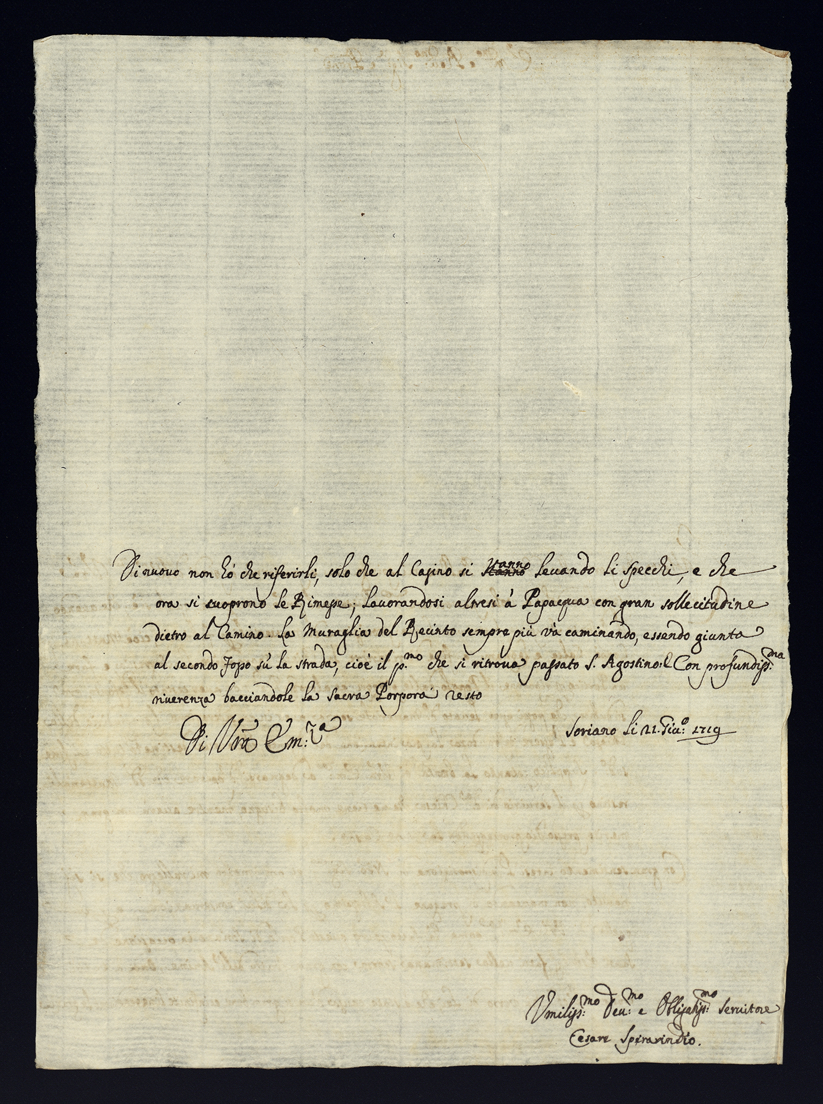 Di nuovo non hò che riferirli, solo che al Casino si stanno levando li specchi, e che
ora si cuoprono le Rimesse; lavorandosi altresi à Papacqua con gran sollecitudine
dietro al Camino. La Muraglia del Recinto sempre più và caminando, essendo giunta
al secondo fosso sù la strada, cioè il p.mo che si ritrova passato S. Agostino: E Con profundiss.ma
riverenza bacciandole la Sacra Porpora resto
Di Vra Em.za
Soriano li 21. Giu.o 1719
Umiliss.mo Dev.mo e Obligatiss.mo Servitore
Cesare Spiravindio.